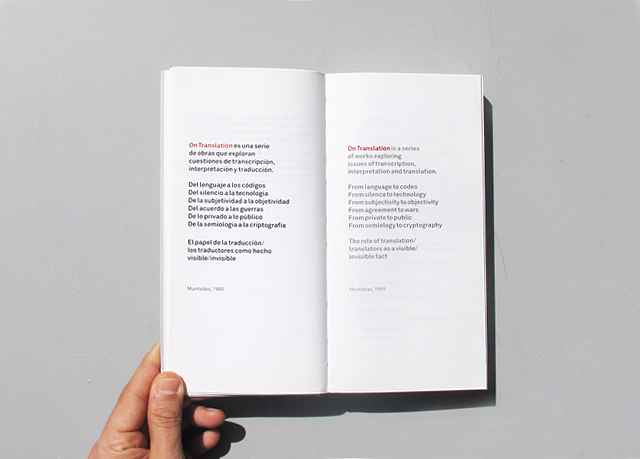 On Translation es una serie
de obras que exploran
cuestiones de transcripción,
interpretación y traducción.
Del lenguaje a los códigos
Del silencio a la tecnología
De la subjetividad a la objetividad
Del acuerdo a las guerras
De lo privado a lo público
De la semiología a la criptografía
El papel de la traducción/
los traductores como hecho
visible/invisible
Muntadas, 1995
On Translation is a series
of works exploring
issues of transcription,
interpretation and translation.
From language to codes
From silence to technology
From subjectivity to objectivity
From agreement to wars
From private to public
From semiology to cryptography
The role of translation/
translators as a visible/
invisible fact
Muntadas, 1995